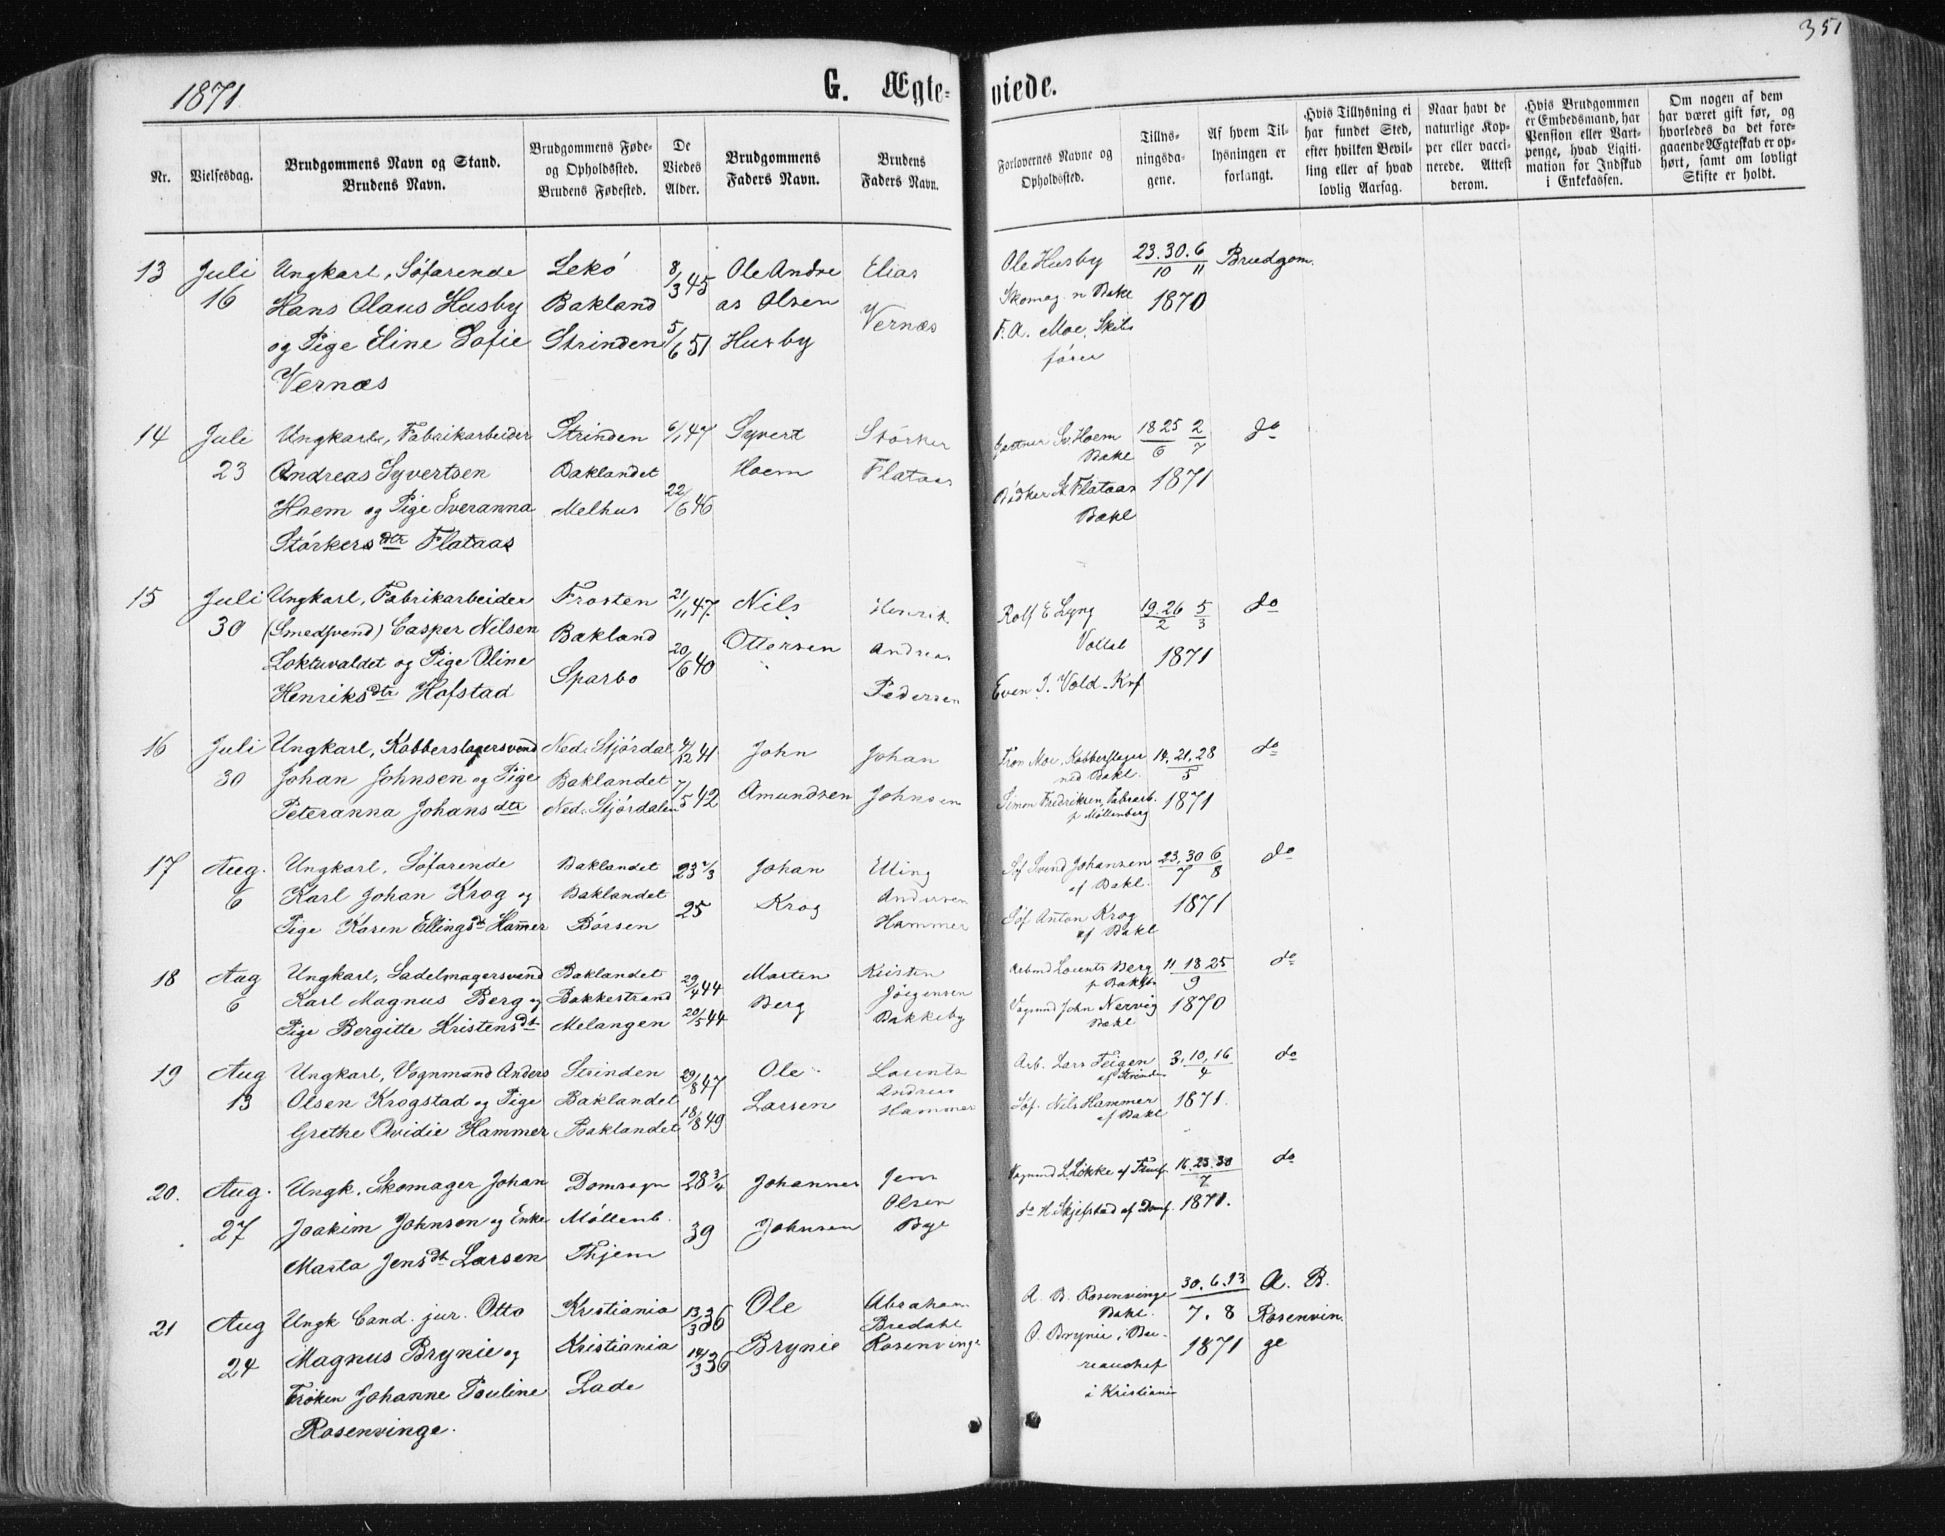 351
1871.
G. Ægteviede.
Nr.
Vielsesdag.
Brudgommens Navn og Stand.
Brudens Navn.
Brudgommens Føde-
og Opholdssted.
Brudens Fødested.
De
Viedes
Alder.
Brudgommens
Faders Navn.
Brudens
Faders Navn.
Forlovernes Navne og
Opholdssted.
Tillys-
ningsda-
gene.
Af hvem Til-
lysningen er
forlangt.
Hvis Tillysning ei
har fundet Sted,
efter hvilken Bevil-
ling eller af hvad
lovlig Aarsag.
Naar havt de
naturlige Kop-
per eller vacci-
nerede. Attest
derom.
Hvis Brudgommen
er Embedsmand, har
Pension eller Vart-
penge, hvad Ligiti-
mation for Indskud
i Enkekassen.
Om nogen af dem
har været gift før, og
hvorledes da det fore-
gaaende Ægteskab er op-
hørt, samt om lovligt
Skifte er holdt.
13 Juli Ungkarl, Söfarende Lekö 8/3 45 Ole Andre Elias Ole Husby 23.30.6 Brudgom.
16 Hans Olaus Husby Bakland as Olsen Vernæs Skomag. n Bakl 10 11 1870
og Pige Eline Sofie Strinden 5/6 51 Husby F. A. Moe, Skibs
Vernæs förer
14 Juli Ungkarl, Fabrikarbeider Strinden 6/1 47 Syvert Störker Gartner Sv. Hoem 18 25 2 do
23 Andreas Syvertsen Baklandet Hoem Flataas Bakl 6 7
Hoem og Pige Sveranna Melhus 22/6 46 Bödker St. Flataas 1871
Störkersdtr Flataas Bakl
15 Juli Ungkarl, Fabrikarbeider Frosten 21/11 47. Nils Henrik Rolf E Lyng 19.26 5 do
30 (Smedsvend) Casper Nilsen Bakland Ottersen Andreas Vollat 2 3
Loktuvaldet og Pige Oline Sparbo 20/6 40 Pedersen 1871
Henriksdtr Hofstad Even J. Vold
16 Juli Ungkarl, Kobberslagersvend Ned. Stjördal 4/12 41 John Johan Moe, Kobberslager 14.21.28 do
30 Johan Johnsen og Pige Baklandet 7/5 42 Amundsen Johnsen ned Bakl. 5
Peteranna Johansdtr Ned. Stjördalen Simon Fredriksen, Fabrarb. 1871
p Möllenberg
17 Aug. Ungkarl, Söfarende Baklandet 23 2/3 Johan Elling Sf Svend Johansen 23.30 6 do
6 Karl Johan Krog og Baklandet Krog Andersen af Bakl. 7 8
Pige Karen Ellingsdt Hammer Börsen 25 Hammer Söf Anton Krog 1871
af Bakl
18 Aug Ungkarl, Sadelmagersvend Baklandet 29/4 44 Morten Kristen Arbmd Lorents Berg 11 18 25 do
6 Karl Magnus Berg og Bakkestrand Berg Jörgensen p 9
Pige Bergitte Kristensdt Melangen 20/5 44 Bakkeby Vogmnd John Nervig 1870
Bakl
19 Aug Ungkarl, Vognmand Anders Strinden 29/8 47 Ole Lorents Arb. Lars Teigen 3.10.16 do
13 Olsen Krogstad og Pige Baklandet Larsen Andreas af Strinden 4
Grethe Ovidie Hammer Baklandet 18/8 49 Hammer Söf. Nils Hammer 1871.
af Bakl
20. Aug. Ungk. Skomager Johan Domsogn 28 3/4 Johannes Jens Vogmnd L Lökke af 16.23.30 do
27 Joakim Johnson og Enke Möllenb. Johnsen Olsen 7
Marta Jensdt Larsen Thjem 39 Bye do H. Skjefstad af Doms. 1871.
21 Aug Ungk Cand. jur. Otto Kristiania 13/3 36 Ole Abraham A. B. Rosenvinge 30.6.13 A. B.
24 Magnus Brynie og Kristiania Brynie Bredahl Bakl. 7. 8 Rosenvin
Fröken Johanne Pouline Lade 14/3 36 Rosenvinge O. Brynie, Bu- 1871 ge
Rosenvinge. reauchef
i Kristiania